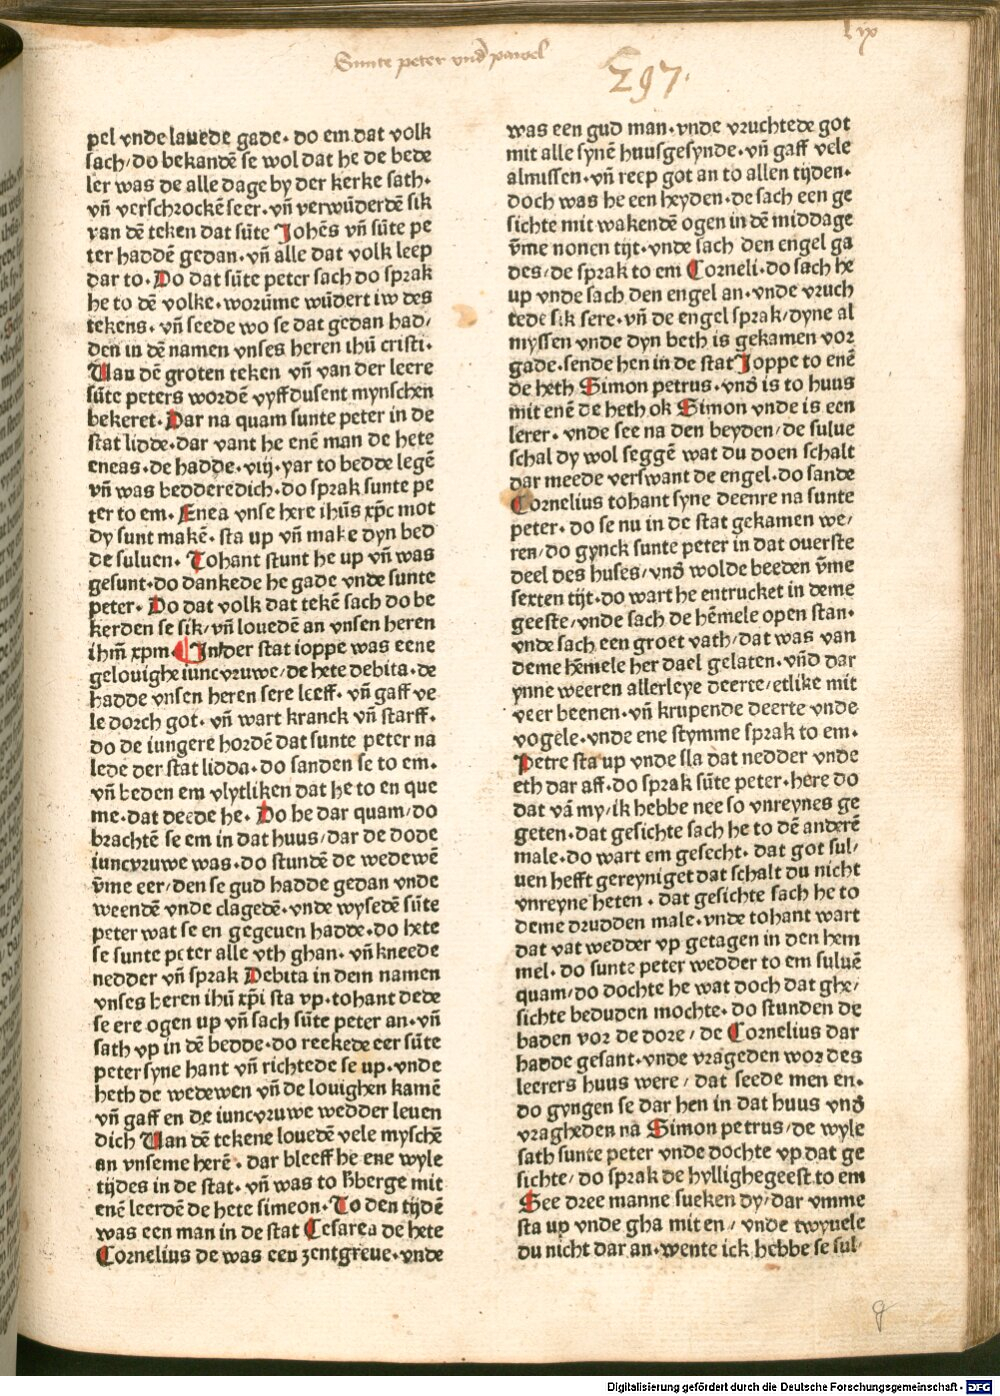 Sunte peter vnd pawel
lix
297.
pel vnde lauede gade· do em dat volk
sach/do bekandē se wol dat he de bede
ler was de alle dage by der kerke sath·
vn̄ verschrockē seer· vn̄ verwūderdē sik
van dē teken dat sūte Johēs vn̄ sūte pe
ter haddē gedan· vn̄ alle dat volk leep
dar to· Do dat sūte peter sach do sprak
he to dē volke· worūme wūdert iw des
tekens· vn̄ seede wo se dat gedan had/
den in dē namen vnses heren ihū cristi·
Uan dē groten teken vn̄ van der leere
sūte peters wordē vyffdusent mynschen
bekeret· Dar na quam sunte peter in de
stat lidde· dar vant he enē man de hete
eneas· de hadde· viij· yar to bedde legē
vn̄ was bedderedich· do sprak sunte pe
ter to em· Enea vnse here ihūs xp̄c mot
dy sunt makē· sta up vn̄ make dyn bed
de suluen· Tohant stunt he up vn̄ was
gesunt· do dankede he gade vnde sunte
peter· Do dat volk dat tekē sach do be
kerden se sik/ vn̄ louedē an vnsen heren
ihm̄ xpm· In der stat ioppe was eene
gelouighe iuncvruwe/ de hete debita· de
hadde vnsen heren sere leeff· vn̄ gaff ve
le dorch got· vn̄ wart kranck vn̄ starff·
do de iungere hordē dat sunte peter na
lede der stat lidda· do sanden se to em·
vn̄ beden em vlytliken dat he to en que
me· dat deede he· Do he dar quam/ do
brachtē se em in dat huus/ dar de dode
iuncvruwe was· do stundē de wedewē
v̄me eer/ den se gud hadde gedan vnde
weendē vnde clagedē· vnde wysedē sūte
peter wat se en gegeuen hadde· do hete
se sunte peter alle vth ghan· vn̄ kneede
nedder vn̄ sprak Debita in dem namen
vnses heren ihū xp̄i sta vp· tohant dede
se ere ogen up vn̄ sach sūte peter an· vn̄
sath vp in dē bedde· do reckede eer sūte
peter syne hant vn̄ richtede se up· vnde
heth de wedewen vn̄ de louighen kamē
vn̄ gaff en de iuncvruwe wedder leuen
dich Uan dē tekene louedē vele myschē
an vnseme herē· dar bleeff he ene wyle
tijdes in de stat· vn̄ was to h̄berge mit
enē leerdē de hete simeon· To den tijdē
was een man in de stat Cesarea de hete
Cornelius de was een zentgreue· vnde
was een gud man· vnde vruchtede got
mit alle synē huusgesynde· vn̄ gaff vele
almissen· vn̄ reep got an to allen tijden·
doch was he een heyden· de sach een ge
sichte mit wakendē ogen in dē middage
v̄me nonen tijt· vnde sach den engel ga
des/ de sprak to em Corneli· do sach he
up vnde sach den engel an· vnde vruch
tede sik sere· vn̄ de engel sprak/ dyne al
myssen vnde dyn beth is gekamen vor
gade· sende hen in de stat Joppe to enē
de heth Simon petrus· vnd̄ is to huus
mit enē de heth ok Simon vnde is een
lerer· vnde see na den beyden/ de sulue
schal dy wol seggē wat du doen schalt
dar meede verswant de engel· do sande
Cornelius tohant syne deenre na sunte
peter· do se nu in de stat gekamen we/
ren/ do gynck sunte peter in dat ouerste
deel des huses/ vnd̄ wolde beeden v̄me
sexten tijt· do wart he entrucket in deme
geeste/ vnde sach de hēmele open stan·
vnde sach een groet vath/ dat was van
deme hēmele her dael gelaten· vn̄d dar
ynne weeren allerleye deerte/ etlike mit
veer beenen· vn̄ krupende deerte vnde
vogele· vnde ene stymme sprak to em·
Petre sta up vnde sla dat nedder vnde
eth dar aff· do sprak sūte peter· here do
dat vā my/ ik hebbe nee so vnreynes ge
geten· dat gesichte sach he to dē anderē
male· do wart em gesecht· dat got sul/
uen hefft gereyniget dat schalt du nicht
vnreyne heten· dat gesichte sach he to
deme drudden male· vnde tohant wart
dat vat wedder vp getagen in den hem
mel· do sunte peter wedder to em suluē
quam/ do dochte he wat doch dat ghe/
sichte beduden mochte· do stunden de
baden vor de dore/ de Cornelius dar
hadde gesant· vnde vrageden wor des
leerers huus were/ dat seede men en·
do gyngen se dar hen in dat huus vnd̄
vragheden na Simon petrus/ de wyle
sath sunte peter vnde dochte vp dat ge
sichte/ do sprak de hyllighegeest to em
See dree manne sueken dy/ dar vmme
sta up vnde gha mit en/ vnde twyuele
du nicht dar an· wente ick hebbe se sul/
g
Digitalisierung gefördert durch die Deutsche Forschungsgemeinschaft - DFG